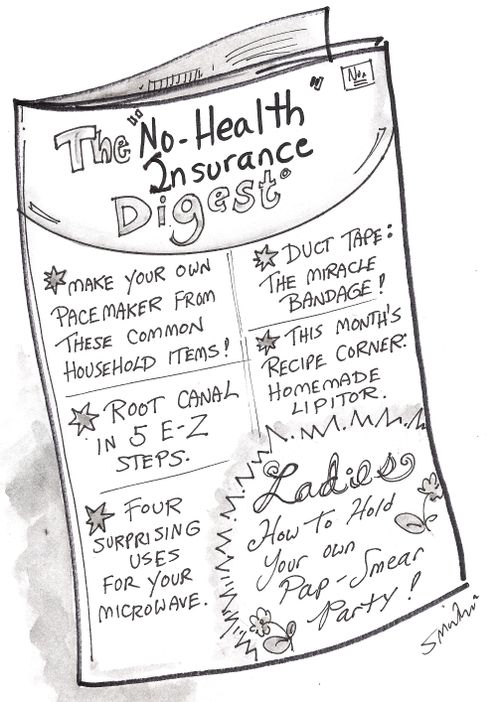 Nov
The "No-Health
Insurance
Digest"
MAKE YOUR OWN
PACEMAKER FROM
THESE COMMON
HOUSEHOLD ITEMS!
ROOT CANAL
IN 5 E-Z
STEPS.
FOUR
SURPRISING
USES
FOR YOUR
MICROWAVE.
DUCT TAPE:
THE MIRACLE
BANDAGE!
THIS MONTH'S
RECIPE CORNER:
HOMEMADE
LIPITOR.
Ladies
How to Hold
Your own
Pap-Smear
Party!